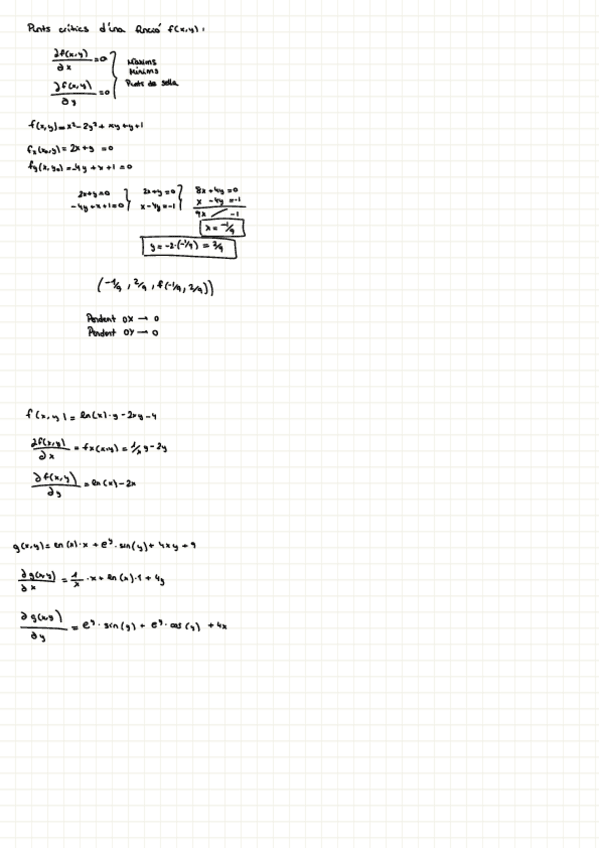 Punts crítics d'una funció f(x,y):
∂f(x,y)/∂x = 0
∂f(x,y)/∂y = 0
Màxims
Mínims
Punts de sella
f(x,y)=x²-2y²+xy+y+1
fx(x₀,y)=2x+y =0
fy(x,y₀)=-4y+x+1=0
2x+y=0 2x+y=0 8x+4y=0
-4y+x+1=0 x-4y=-1 x-4y=-1
9x -1
x=-1/9
y=-2·(-1/9)=2/9
(-1/9, 2/9, f(-1/9, 2/9))
Pendent OX → 0
Pendent OY → 0
f(x,y)=ln(x)·y-2xy-4
∂f(x,y)/∂x = fx(x,y)=1/x y-2y
∂f(x,y)/∂y = ln(x)-2x
g(x,y)=ln(x)·x+e^y·sin(y)+4xy+9
∂g(x,y)/∂x = 1/x·x+ln(x)·1+4y
∂g(x,y)/∂y = e^y·sin(y)+e^y·cos(y)+4x